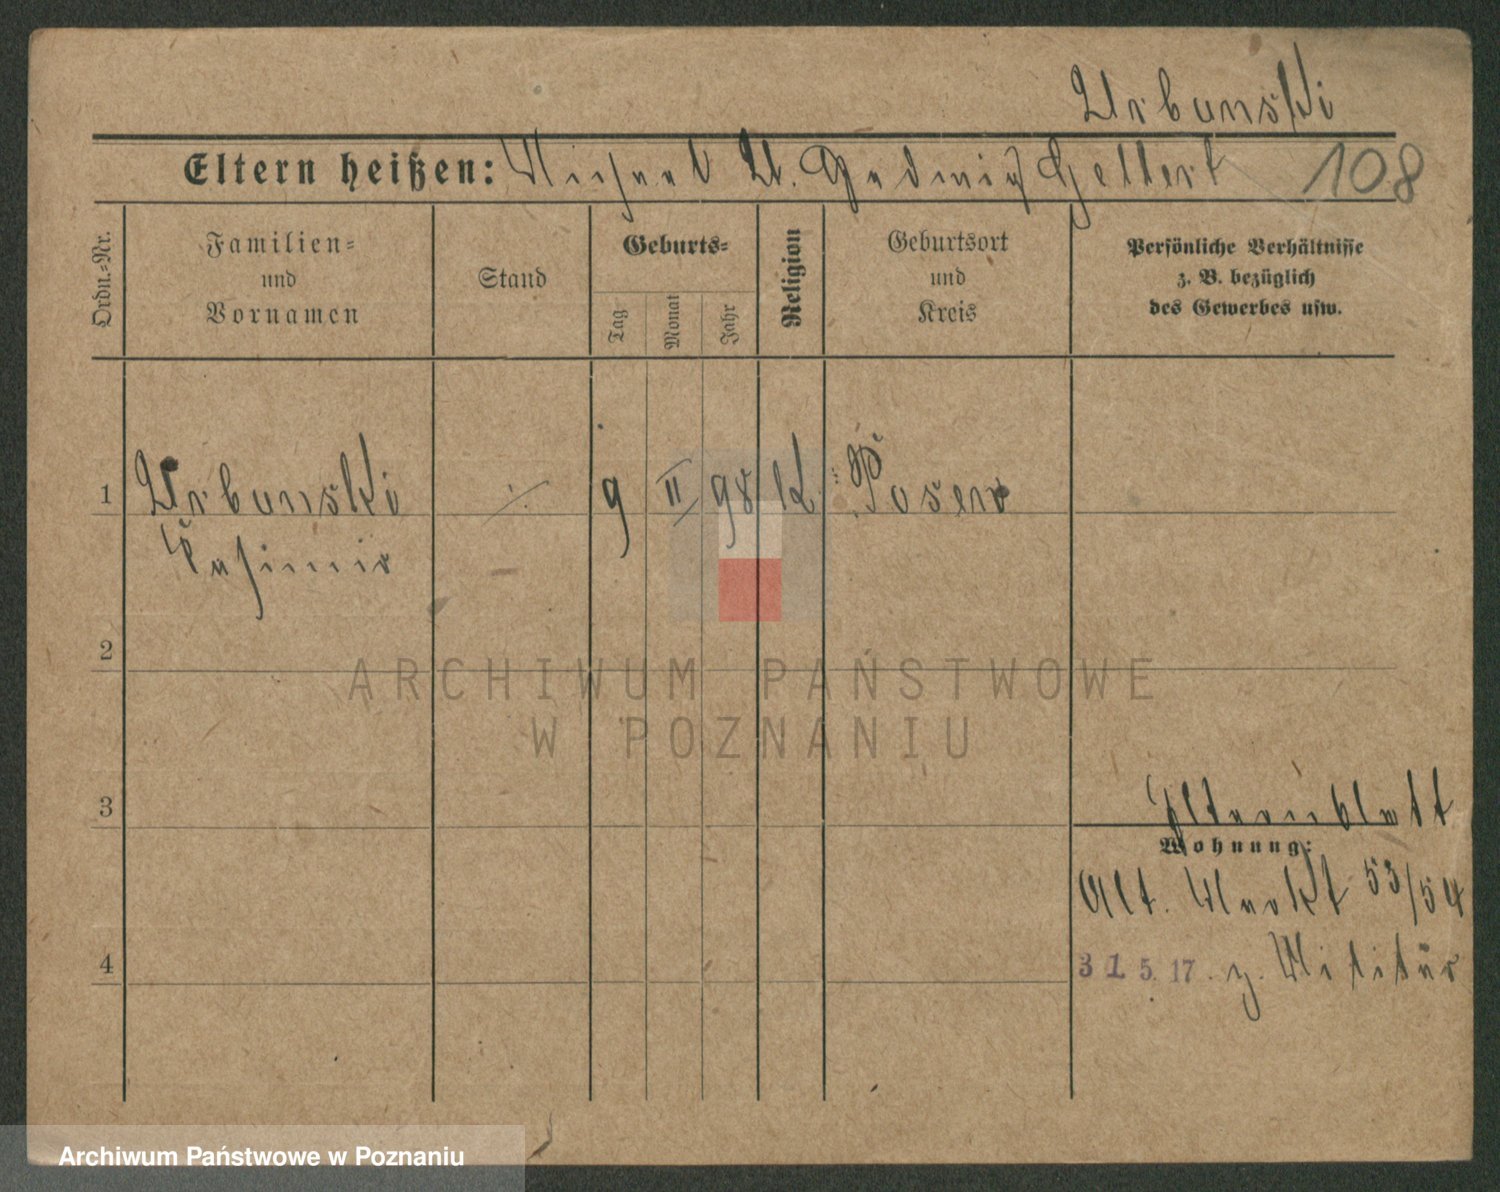 Urbanski
Eltern heißen: Michael U. Hedwig Gellert 108
Ordn.-Nr.
Familien-
und
Vornamen
Stand
Geburts-
Tag
Monat
Jahr
Religion
Geburtsort
und
Kreis
Persönliche Verhältnisse
z. B. bezüglich
des Gewerbes usw.
1 Urbanski ./. 9 II 98 K. Posen
Casimir
2
ARCHIWUM PAŃSTWOWE
W POZNANIU
3
Elternblatt
Wohnung:
Alt. Markt 53/54
4
31 5. 17. z. Militär
Archiwum Państwowe w Poznaniu